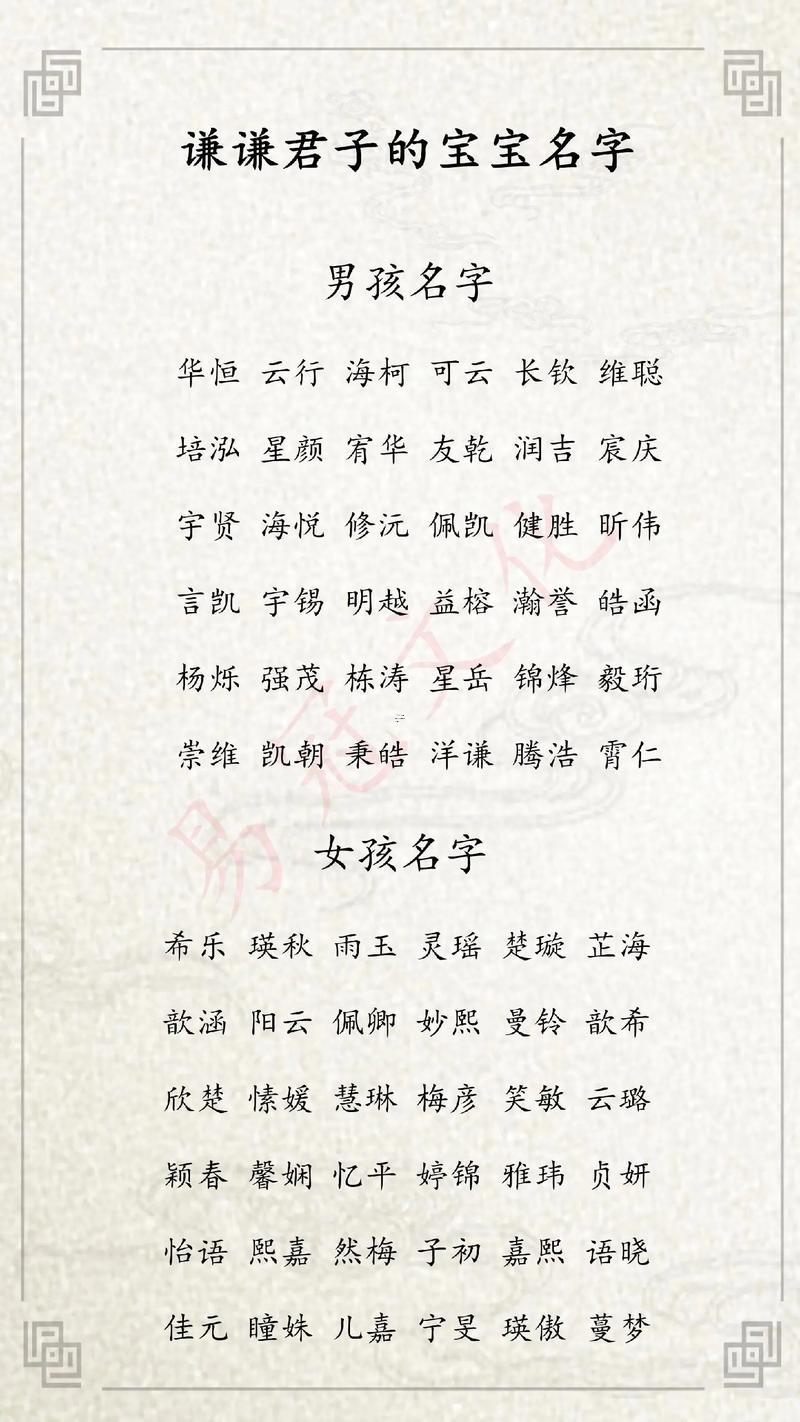 谦谦君子的宝宝名字
男孩名字
华恒 云行 海柯 可云 长钦 维聪
培泓 星颜 宥华 友乾 润吉 宸庆
宇贤 海悦 修沅 佩凯 健胜 昕伟
言凯 宇锡 明越 益榕 瀚誉 皓函
杨烁 强茂 栋涛 星岳 锦烽 毅珩
崇维 凯朝 秉皓 洋谦 腾浩 霄仁
易冠文化
女孩名字
希乐 瑛秋 雨玉 灵瑶 楚璇 芷海
歆涵 阳云 佩卿 妙熙 曼铃 歆希
欣楚 愫媛 慧琳 梅彦 笑敏 云璐
颖春 馨娴 忆平 婷锦 雅玮 贞妍
怡语 熙嘉 然梅 子初 嘉熙 语晓
佳元 瞳姝 儿嘉 宁旻 瑛傲 蔓梦